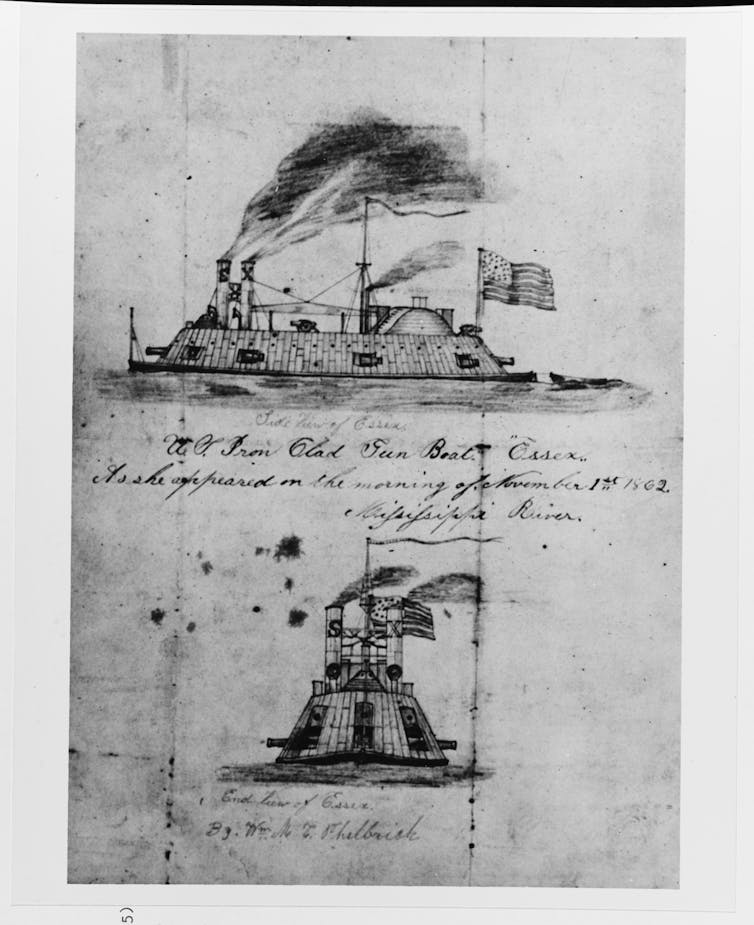 Side View of Essex.
U.S. Iron Clad Gun Boat "Essex„
As she appeared on the morning of November 1st 1862.
Mississippi River.
S X
End View of Essex.
By. Wm. M. C. Philbrick
5)